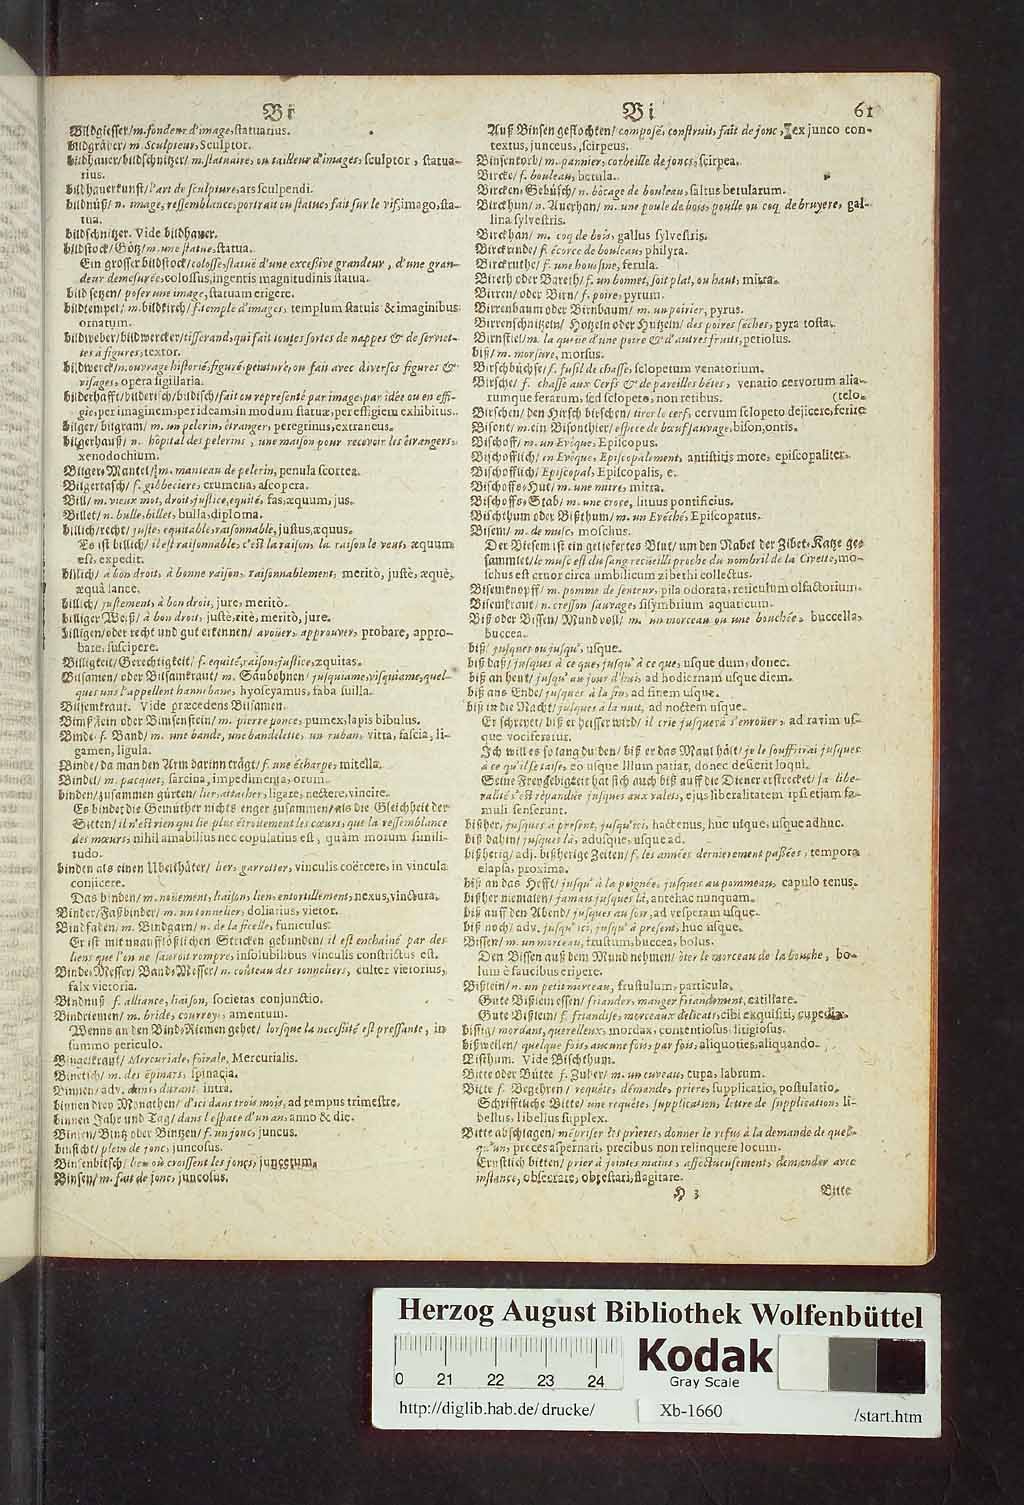 Bi
Bi 61
Bildgiesser/ m. fondeur d'image, statuarius.
bildgräber/ m. Sculpteur, Sculptor.
bildhauer/bildschnitzer/ m. statuaire, ou tailleur d'images, sculptor, statua-
rius.
bildhauerkunst/ l'art de sculpture, ars sculpendi.
bildnüß/ n. image, ressemblance, portrait ou statue, fait sur le vif, imago, sta-
tua.
bildschnitzer. Vide bildhauer.
bildstock/Götz/ m. une statue, statua.
Ein grosser bildstock/ colosse, statuë d'une excessive grandeur, d'une gran-
deur demesurée, colossus, ingentis magnitudinis statua.
bild setzen/ poser une image, statuam erigere.
bildtempel/ m. bildkirch/ f. temple d'images, templum statuis & imaginibus
ornatum.
bildweber/bildwercker/ tisserand, qui fait toutes sortes de nappes & de serviet-
tes à figures, textor.
bildwerck/ n. ouvrage historié, figuré, peinture, ou fait avec diverses figures &
visages, opera sigillaria.
bilderhafft/bilderisch/bildisch/ fait ou representé par image, par idée ou en effi-
gie, per imaginem, per ideam, in modum statuæ, per effigiem exhibitus.
bilger/ bilgram/ m. un pelerin, étranger, peregrinus, extraneus.
bilgerhauß/ n. hôpital des pelerins, une maison pour recevoir les étrangers,
xenodochium.
Bilger-Mantel/ m. manteau de pelerin, penula scortea.
Bilgertasch/ f. gibbeciere, crumena, ascopera.
Bill/ m. vieux mot, droit, justice, equité, fas, æquum, jus.
Billet/ n. bulle, billet, bulla, diploma.
billich/recht/ juste, equitable, raisonnable, justus, æquus.
Es ist billich/ il est raisonnable, c'est la raison, la raison le veut, æquum
est, expedit.
billich/ à bon droit, à bonne raison, raisonnablement, meritò, justè, æquè,
æquâ lance.
billich/ justement, à bon droit, jure, meritò.
billiger Weiß/ à bon droit, justè, ritè, meritò, jure.
billigen/oder recht und gut erkennen/ avoüer, approuver, probare, appro-
bare, suscipere.
Billigkeit/Gerechtigkeit/ f. equité, raison, justice, æquitas.
Bilsamen/ oder Bilsamkraut/ m. Säubohnen/ jusquiame, visquiame, quel-
ques uns l'appellent hannebane, hyoscyamus, faba suilla.
Bilsemkraut. Vide præcedens Bilsamen.
Bimßstein oder Bimsenstein/ m. pierre ponce, pumex, lapis bibulus.
Binde. f. Band/ m. une bande, une bandelette, un ruban, vitta, fascia, li-
gamen, ligula.
Binde/ da man den Arm darinn trägt/ f. une écharpe, mitella.
Bindel/ m. pacquet, sarcina, impedimenta, orum.
binden/zusammen gürten/ lier, attacher, ligare, nectere, vincire.
Es bindet die Gemüther nichts enger zusammen/ als die Gleichheit der
Sitten/ il n'est rien qui lie plus étroitement les cœurs, que la ressemblance
des mœurs, nihil amabilius nec copulatius est, quàm morum simili-
tudo.
binden als einen Ubelthäter/ lier, garrotter, vinculis coërcere, in vincula
conjicere.
Das binden/ m. noüement, liaison, lien, entortillement, nexus, vinctura.
Binder/Faßbinder/ m. un tonnelier, doliarius, vietor.
Bindfaden/ m. Bindgarn/ n. de la ficelle, funiculus.
Er ist mit unaufflößlichen Stricken gebunden/ il est enchainé par des
liens que l'on ne sauroit rompre, insolubilibus vinculis constrictus est.
Binde-Messer/ Band-Messer/ n. coûteau des tonneliers, culter vietorius,
falx vietoria.
Bindnuß f. alliance, liaison, societas conjunctio.
Bindriemen/ m. bride, courroy, amentum.
Wenns an den Bind-Riemen gehet/ lorsque la necessité est pressante, in
summo periculo.
Bingelkraut/ Mercuriale, foirale, Mercurialis.
Binetich/ m. des épinars, spinacia.
Binnen/ adv. dans, durant, intra.
binnen drey Monathen/ d'ici dans trois mois, ad tempus trimestre.
binnen Jahr und Tag/ dans l'espace d'un an, anno & die.
Binsen/ Bintz oder Bintzen/ f. un jonc, juncus.
binsicht/ plein de jonc, juncosus.
Binsenbitsch/ lieu où croissent les joncs, juncetum.
Binsen/ m. fait de jonc, juncolus.
Auß Binsen geflochten/ composé, construit, fait de jonc, ex junco con-
textus, junceus, scirpeus.
Binsenkorb/ m. pannier, corbeille de joncs, scirpea.
Bircke/ f. bouleau, betula.
Bircken-Gebüsch/ n. bôcage de bouleau, saltus betularum.
Birckhun/ n. Auerhan/ m. une poule de bois, poulle ou coq de bruyere, gal-
lina sylvestris.
Birckhan/ m. coq de bois, gallus sylvestris.
Birckrinde/ f. écorce de bouleau, philyra.
Birckruthe/ f. une houssine, ferula.
Bireth oder Bareth/ f. un bonnet, soit plat, ou haut, mitra.
Birren/ oder Birn/ f. poire, pyrum.
Birrenbaum oder Birnbaum/ m. un poirier, pyrus.
Birrenschnitzeln/ Hotzeln oder Hutzeln/ des poires sêches, pyra tosta.
Birnstiel/ m. la queue d'une poire & d'autres fruits, petiolus.
biß/ m. morsure, morsus.
Birschbüchse/ f. fusil de chasse, sclopetum venatorium.
Birsche/ f. chasse aux Cerfs & de pareilles bêtes, venatio cervorum alia-
rumque ferarum, sed sclopeto, non retibus. (telo.
Birschen/ den Hirsch birschen/ tirer le cerf, cervum sclopeto dejicere, ferire
Bisont/ m. ein Bisonthier/ espece de bœuf sauvage, bison, ontis.
Bischoff/ m. un Evêque, Episcopus.
Bischofflich/ en Evêque, Episcopalement, antistitis more, episcopaliter.
Bischofflich/ Episcopal, Episcopalis, e.
Bischoffs-Hut/ m. une mitre, mitra.
Bischoffs-Stab/ m. une croce, lituus pontificius.
Bischthum oder Bißthum/ m. un Evêché, Episcopatus.
Bisem/ m. de musc, moschus.
Der Biesem ist ein geliefertes Blut/ um den Nabel der Zibet-Katze ge-
sammlet/ le musc est du sang recueilli proche du nombril de la Civette, mo-
schus est cruor circa umbilicum zibethi collectus.
Bisemknopff/ m. pomme de senteur, pila odorata, reticulum olfactorium.
Bisemkraut/ n. cresson sauvage, sisymbrium aquaticum.
Biß oder Bissen/ Mundvoll/ m. un morceau ou une bouchée, buccella,
buccea.
biß/ jusques ou jusqu', usque.
biß daß/ jusques à ce que, jusqu' à ce que, usque dum, donec.
biß an heut/ jusqu' au jour d'hui, ad hodiernam usque diem.
biß ans Ende/ jusques à la fin, ad finem usque.
biß in die Nacht/ jusques à la nuit, ad noctem usque.
Er schreyet/ biß er heisser wird/ il crie jusques à s'enroüer, ad ravim us-
que vociferatur.
Ich will es so lang dulden/ biß er das Maul hält/ je le souffrirai jusques
à ce qu'il se taise, eo usque illum patiar, donec desierit loqui.
Seine Freygebigkeit hat sich auch biß auff die Diener erstrecket/ sa libe-
ralité s'est répandüe jusques aux valets, ejus liberalitatem ipsi etiam fa-
muli senserunt.
bißher, jusques à present, jusqu'ici, hactenus, huc usque, usque adhuc.
biß dahin/ jusques là, adusque, usque ad.
bißherig/ adj. bißherige Zeiten/ f. les années dernierement passées, tempora
elapsa, proxima.
biß an das Hefft/ jusqu' à la poignée, jusques au pommeau, capulo tenus.
bißher niemalen/ jamais jusques là, antehac nunquam.
biß auff den Abend/ jusques au soir, ad vesperam usque.
biß noch/ adv. jusqu' ici, jusqu' à present, huc usque.
Bissen/ m. un morceau, frustum, buccea, bolus.
Den Bissen auß dem Mund nehmen/ ôter le morceau de la bouche, bo-
lum è faucibus eripere.
Bißlein/ n. un petit morceau, frustulum, particula.
Gute Bißlein essen/ friander, manger friandement, catillare.
Gute Bißlein/ f. friandise, morceaux delicats, cibi exquisiti, cupediæ.
bissig/ mordant, querelleux, mordax, contentiosus, litigiosus.
bißweilen/ quelque fois, aucune fois, par fois, aliquoties, aliquando.
Bisthum. Vide Bischthum.
Bitte oder Bütte f. Zuber/ m. un cuveau, cupa, labrum.
Bitte f. Begehren/ requête, démande, priere, supplicatio, postulatio.
Schrifftliche Bitte/ une requête, supplication, lettre de supplication, li-
bellus, libellus supplex.
Bitte abschlagen/ mépriser les prieres, donner le refus à la demande de quel-
qu'un, preces aspernari, precibus non relinquere locum.
Ernstlich bitten/ prier à jointes mains, affectueusement, demander avec
instance, obsecrare, obtestari, flagitare.
H 3 Bitte
Herzog August Bibliothek Wolfenbüttel
0 21 22 23 24
Kodak
Gray Scale
http://diglib.hab.de/drucke/ Xb-1660 /start.htm